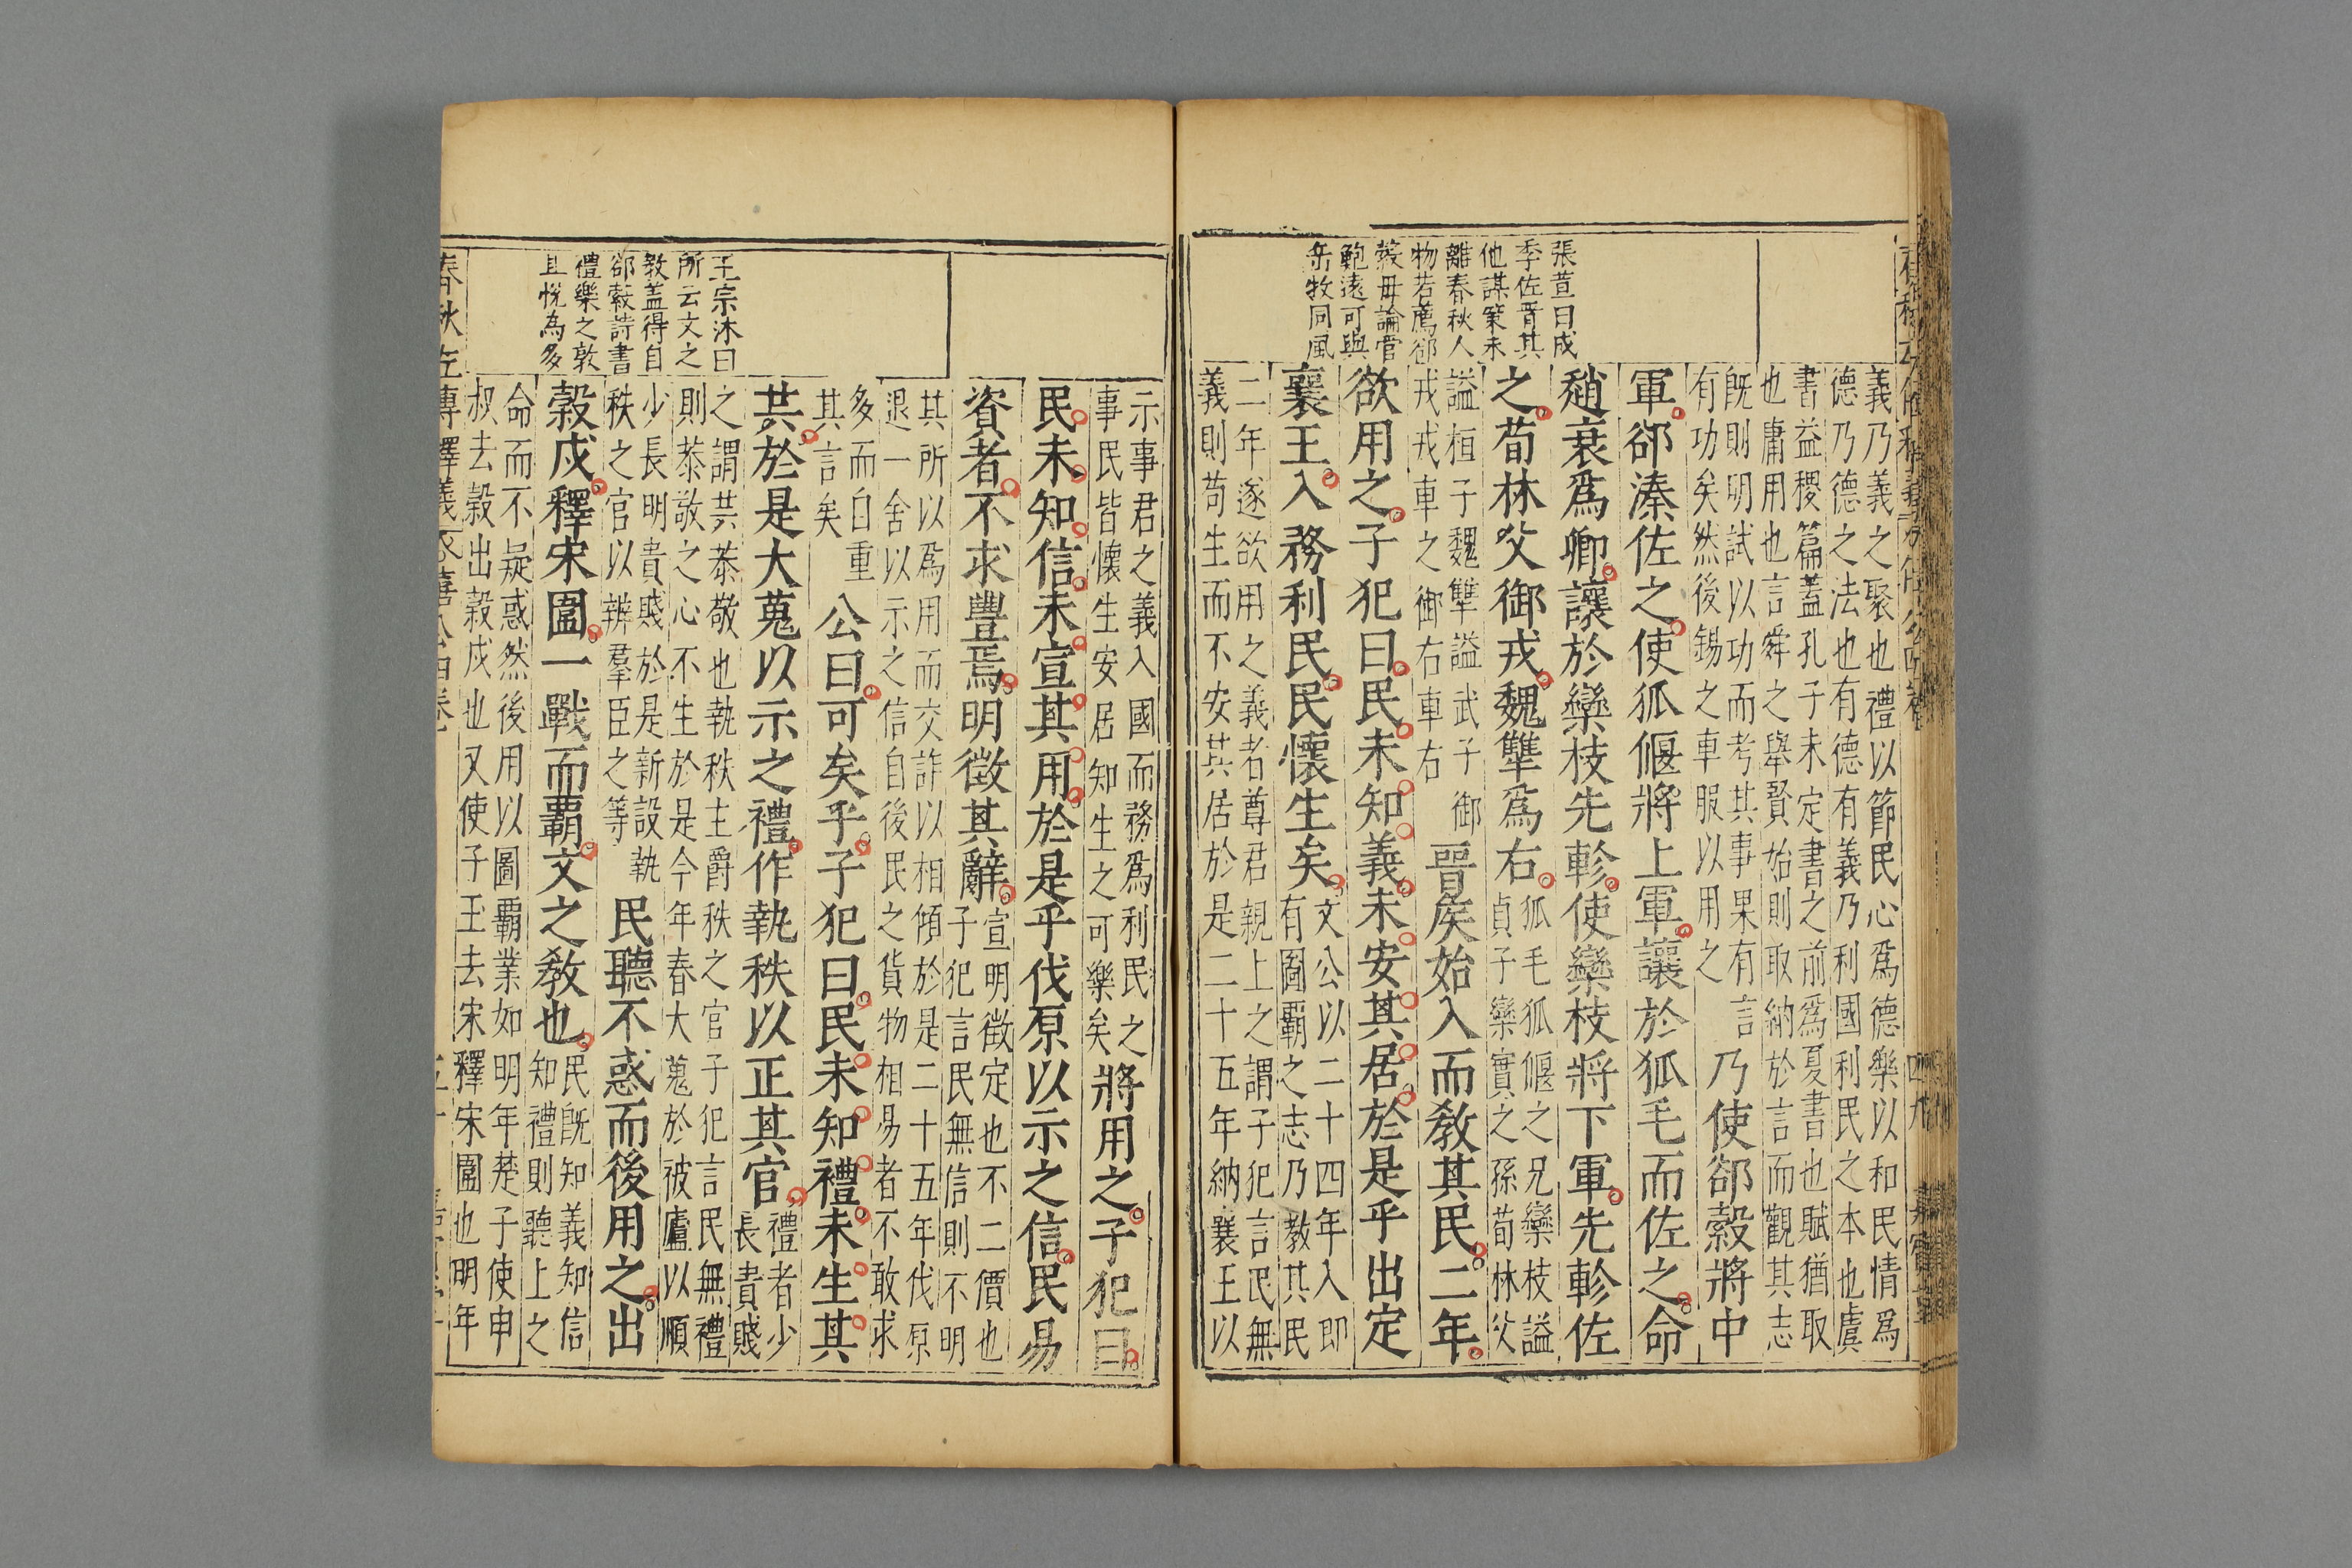 張萱曰成
季佐晋其
他謀策未
離春秋人
物若薦郤
縠毋論管
鮑遠可與
岳牧同風
義乃義之聚也禮以節民心爲德樂以和民情爲
德乃德之法也有德有義乃利國利民之本也虞
書益稷篇蓋孔子未定書之前爲夏書也賦猶取
也庸用也言舜之舉賢始則取納於言而觀其志
旣則明試以功而考其事果有言
有功矣然後錫之車服以用之
乃使郤縠將中
軍郤溱佐之使狐偃將上軍讓於狐毛而佐之命
趙衰爲卿讓於欒枝先軫使欒枝將下軍先軫佐
之荀林父御戎魏犨爲右
狐毛狐偃之兄欒枝謚
貞子欒賓之孫荀林父
謚桓子魏犨謚武子御
戎戎車之御右車右
晉矦始入而教其民二年
欲用之子犯曰民未知義未安其居於是乎出定
襄王入務利民民懷生矣
文公以二十四年入即
有圖霸之志乃教其民
二年遂欲用之義者尊君親上之謂子犯言民無
義則苟生而不安其居於是二十五年納襄王以
王宗沐曰
所云文之
教盖得自
郤縠詩書
禮樂之敦
且悅為多
示事君之義入國而務爲利民之
事民皆懷生安居知生之可樂矣
將用之子犯曰
民未知信未宣其用於是乎伐原以示之信民易
資者不求豐焉明徵其辭
宣明徵定也不二價也
子犯言民無信則不明
其所以爲用而交詐以相傾於是二十五年伐原
退一舍以示之信自後民之貨物相易者不敢求
多而自重
其言矣
公曰可矣乎子犯曰民未知禮未生其
共於是大蒐以示之禮作執秩以正其官
禮者少
長貴賤
之謂共恭敬也執秩主爵秩之官子犯言民無禮
則恭敬之心不生於是今年春大蒐於被廬以順
少長明貴賤於是新設執
秩之官以辨羣臣之等
民聽不惑而後用之出
穀戍釋宋圍一戰而覇文之教也
民旣知義知信
知禮則聽上之
命而不疑惑然後用以圖覇業如明年楚子使申
叔去穀出穀戍也又使子玉去宋釋宋圍也明年